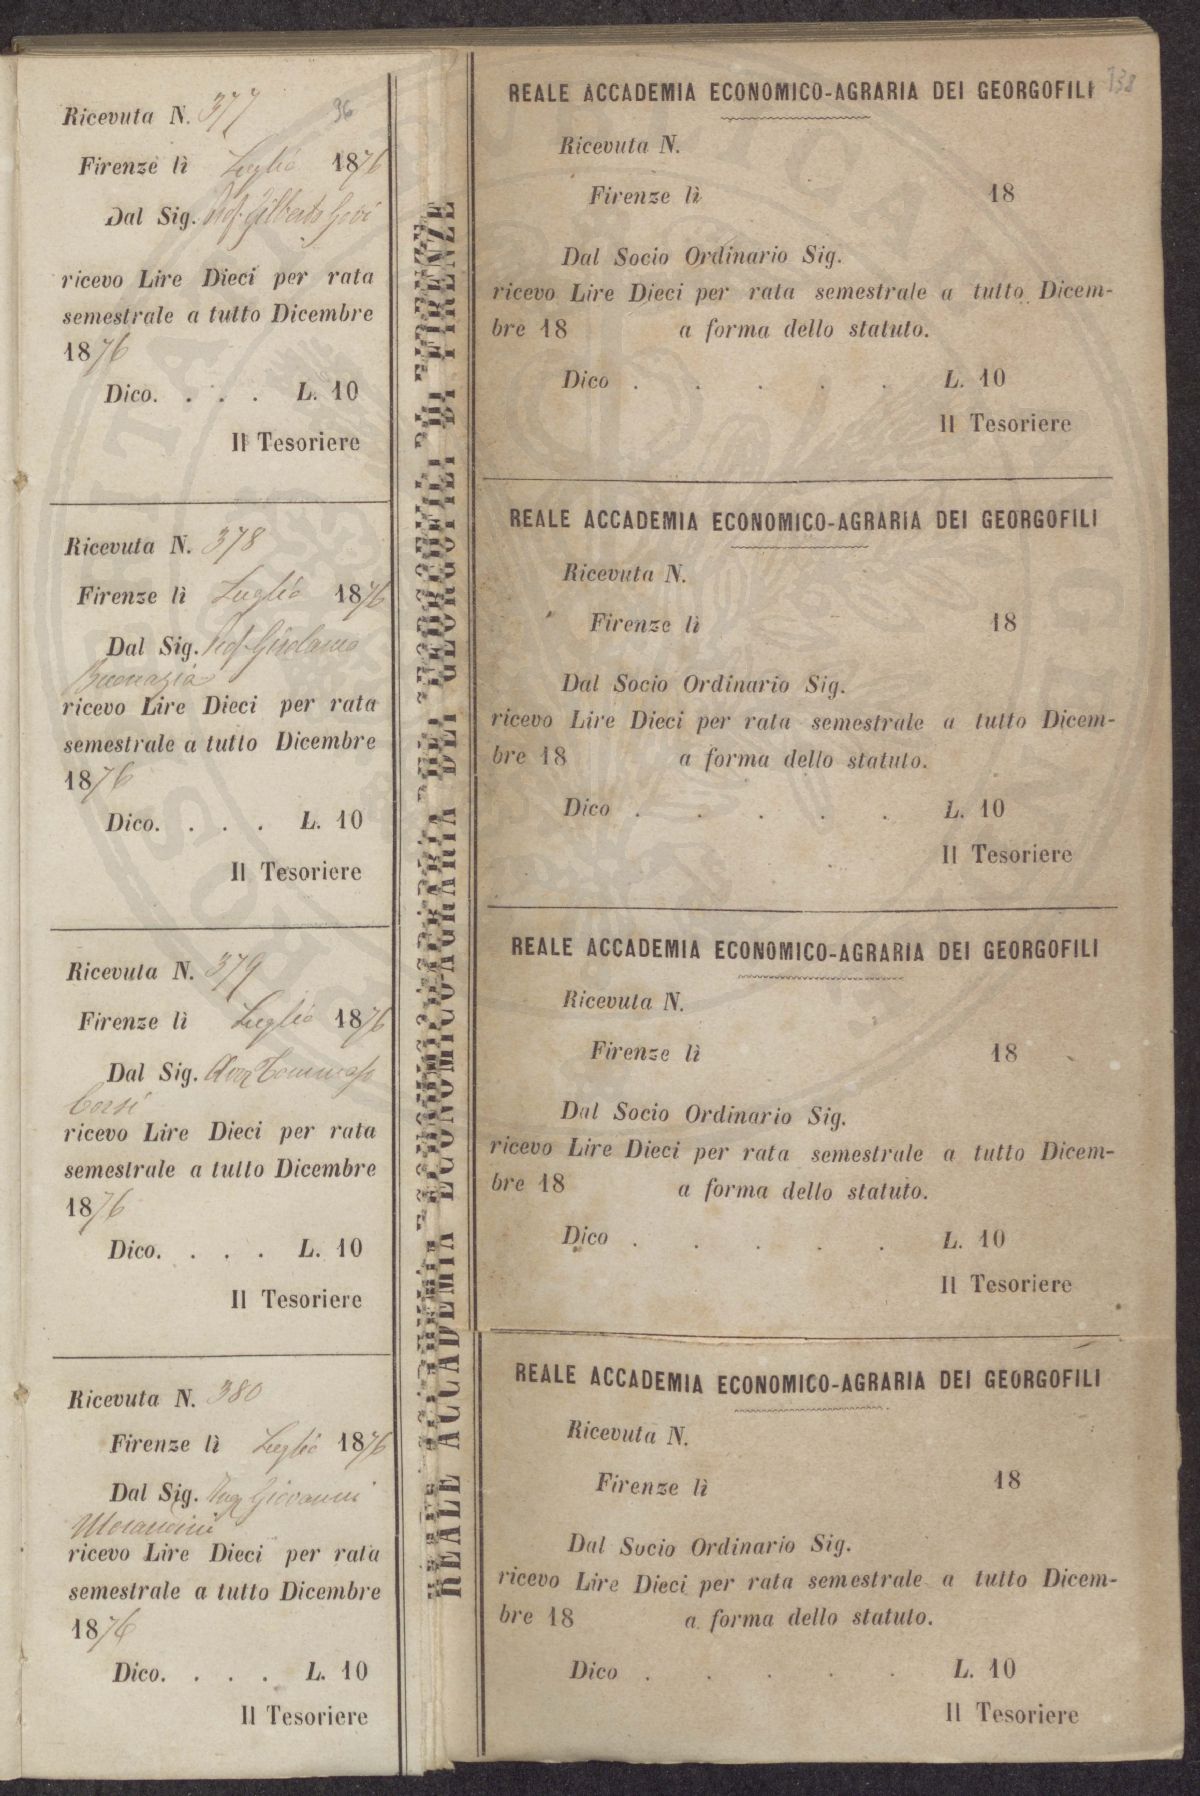 Ricevuta N. 377
96
Firenze lì Luglio 1876
Dal Sig. Prof. Gilberto Govi
ricevo Lire Dieci per rata
semestrale a tutto Dicembre
1876
Dico. . . . L. 10
Il Tesoriere
Ricevuta N. 378
Firenze lì Luglio 1876
Dal Sig. Prof. Girolamo
Buonazia
ricevo Lire Dieci per rata
semestrale a tutto Dicembre
1876
Dico. . . . L. 10
Il Tesoriere
Ricevuta N. 379
Firenze lì Luglio 1876
Dal Sig. Avv. Tommaso
Corsi
ricevo Lire Dieci per rata
semestrale a tutto Dicembre
1876
Dico. . . . L. 10
Il Tesoriere
Ricevuta N. 380
Firenze lì Luglio 1876
Dal Sig. Ing Giovanni
Morandini
ricevo Lire Dieci per rata
semestrale a tutto Dicembre
1876
Dico. . . . L. 10
Il Tesoriere
REALE ACCADEMIA ECONOMICO-AGRARIA DEI GEORGOFILI DI FIRENZE
138
REALE ACCADEMIA ECONOMICO-AGRARIA DEI GEORGOFILI
Ricevuta N.
Firenze lì 18
Dal Socio Ordinario Sig.
ricevo Lire Dieci per rata semestrale a tutto Dicem-
bre 18 a forma dello statuto.
Dico . . . . . L. 10
Il Tesoriere
REALE ACCADEMIA ECONOMICO-AGRARIA DEI GEORGOFILI
Ricevuta N.
Firenze lì 18
Dal Socio Ordinario Sig.
ricevo Lire Dieci per rata semestrale a tutto Dicem-
bre 18 a forma dello statuto.
Dico . . . . . L. 10
Il Tesoriere
REALE ACCADEMIA ECONOMICO-AGRARIA DEI GEORGOFILI
Ricevuta N.
Firenze lì 18
Dal Socio Ordinario Sig.
ricevo Lire Dieci per rata semestrale a tutto Dicem-
bre 18 a forma dello statuto.
Dico . . . . . L. 10
Il Tesoriere
REALE ACCADEMIA ECONOMICO-AGRARIA DEI GEORGOFILI
Ricevuta N.
Firenze lì 18
Dal Socio Ordinario Sig.
ricevo Lire Dieci per rata semestrale a tutto Dicem-
bre 18 a forma dello statuto.
Dico . . . . . L. 10
Il Tesoriere